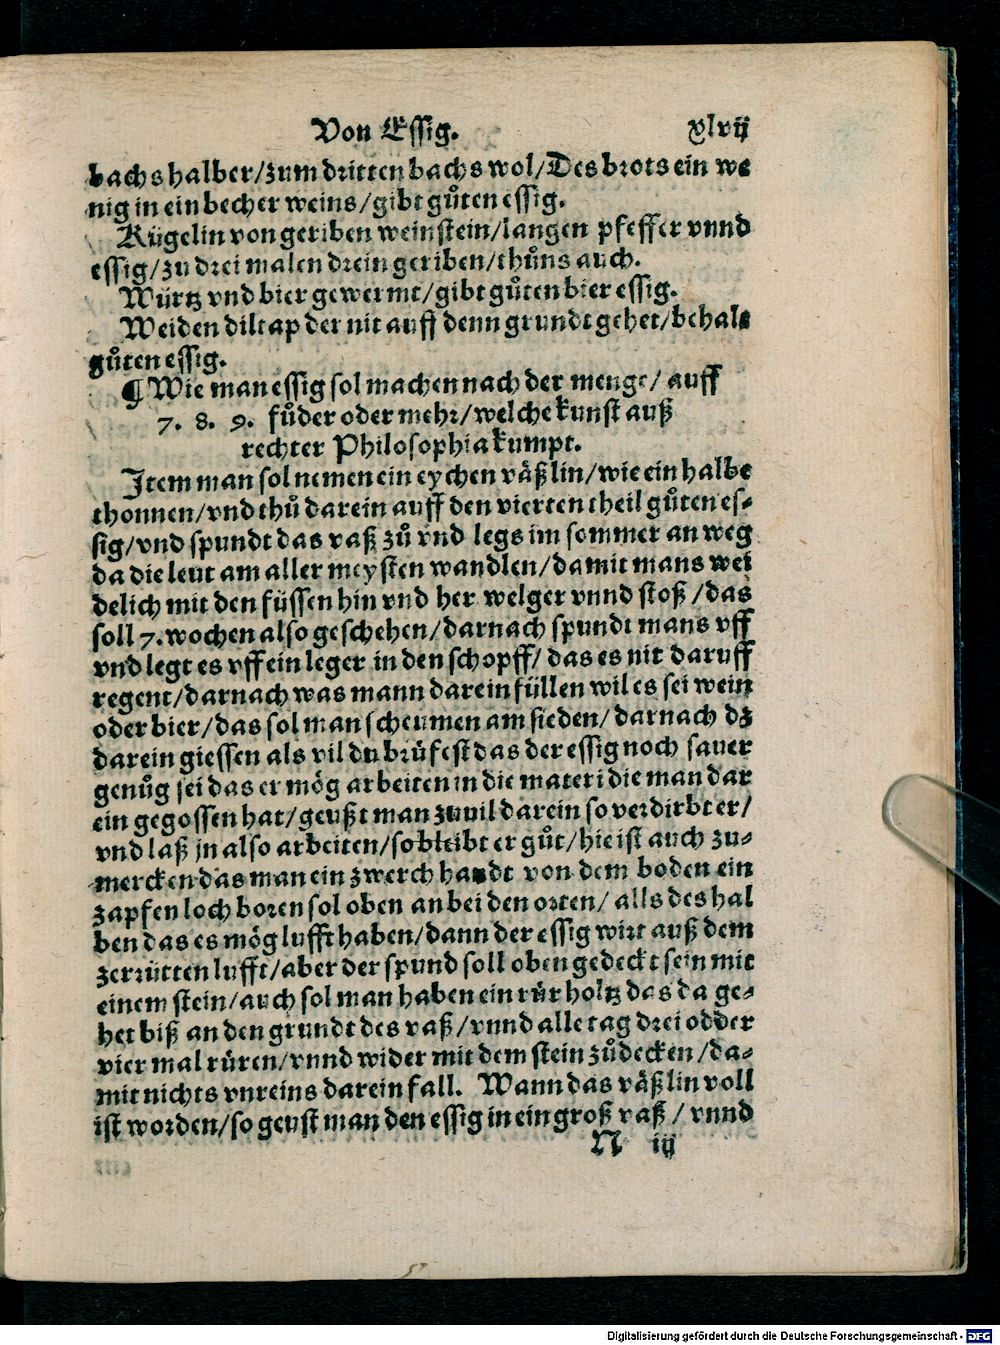 Von Essig. xlvij
bachs halber/zum dritten bachs wol/Des brots ein we
nig in ein becher weins/gibt gůten essig.
Kügelin von geriben weinstein/langen pfeffer vnnd
essig/zu drei malen drein geriben/thůns auch.
Würtz vnd bier gewermt/gibt gůten bier essig.
Weiden diltap der nit auff denn grundt gehet/behalt
gůten essig.
¶ Wie man essig sol machen nach der menge/ auff
7. 8. 9. fůder oder mehr/welche kunst auß
rechter Philosophia kumpt.
Item man sol nemen ein eychen väßlin/wie ein halbe
thonnen/vnd thů darein auff den vierten theil gůten es⸗
sig/vnd spundt das vaß zů vnd legs im sommer an weg
da die leut am aller meysten wandlen/damit mans wei
delich mit den füssen hin vnd her welger vnnd stoß/das
soll 7. wochen also geschehen/darnach spundt mans vff
vnd legt es vff ein leger in den schopff/ das es nit daruff
regent/darnach was mann darein füllen wil es sei wein
oder bier/das sol man scheumen am sieden/ darnach dz
darein giessen als vil du brüfest das der essig noch sauer
genůg sei das er mög arbeiten in die materi die man dar
ein gegossen hat/geußt man zuuil darein so verdirbt er/
vnd laß jn also arbeiten/so bleibt er gůt/hie ist auch zu⸗
mercken das man ein zwerch handt von dem boden ein
zapfen loch boren sol oben an bei den orten/ alls des hal
ben das es mög lufft haben/dann der essig wirt auß dem
zerrütten lufft/aber der spund soll oben gedeckt sein mit
einem stein/auch sol man haben ein rür holtz das da ge⸗
het biß an den grundt des vaß/vnnd alle tag drei odder
vier mal rüren/vnnd wider mit dem stein zůdecken/da⸗
mit nichts vnreins darein fall. Wann das väßlin voll
ist worden/so geust man den essig in ein groß vaß/ vnnd
N iij
Digitalisierung gefördert durch die Deutsche Forschungsgemeinschaft - DFG